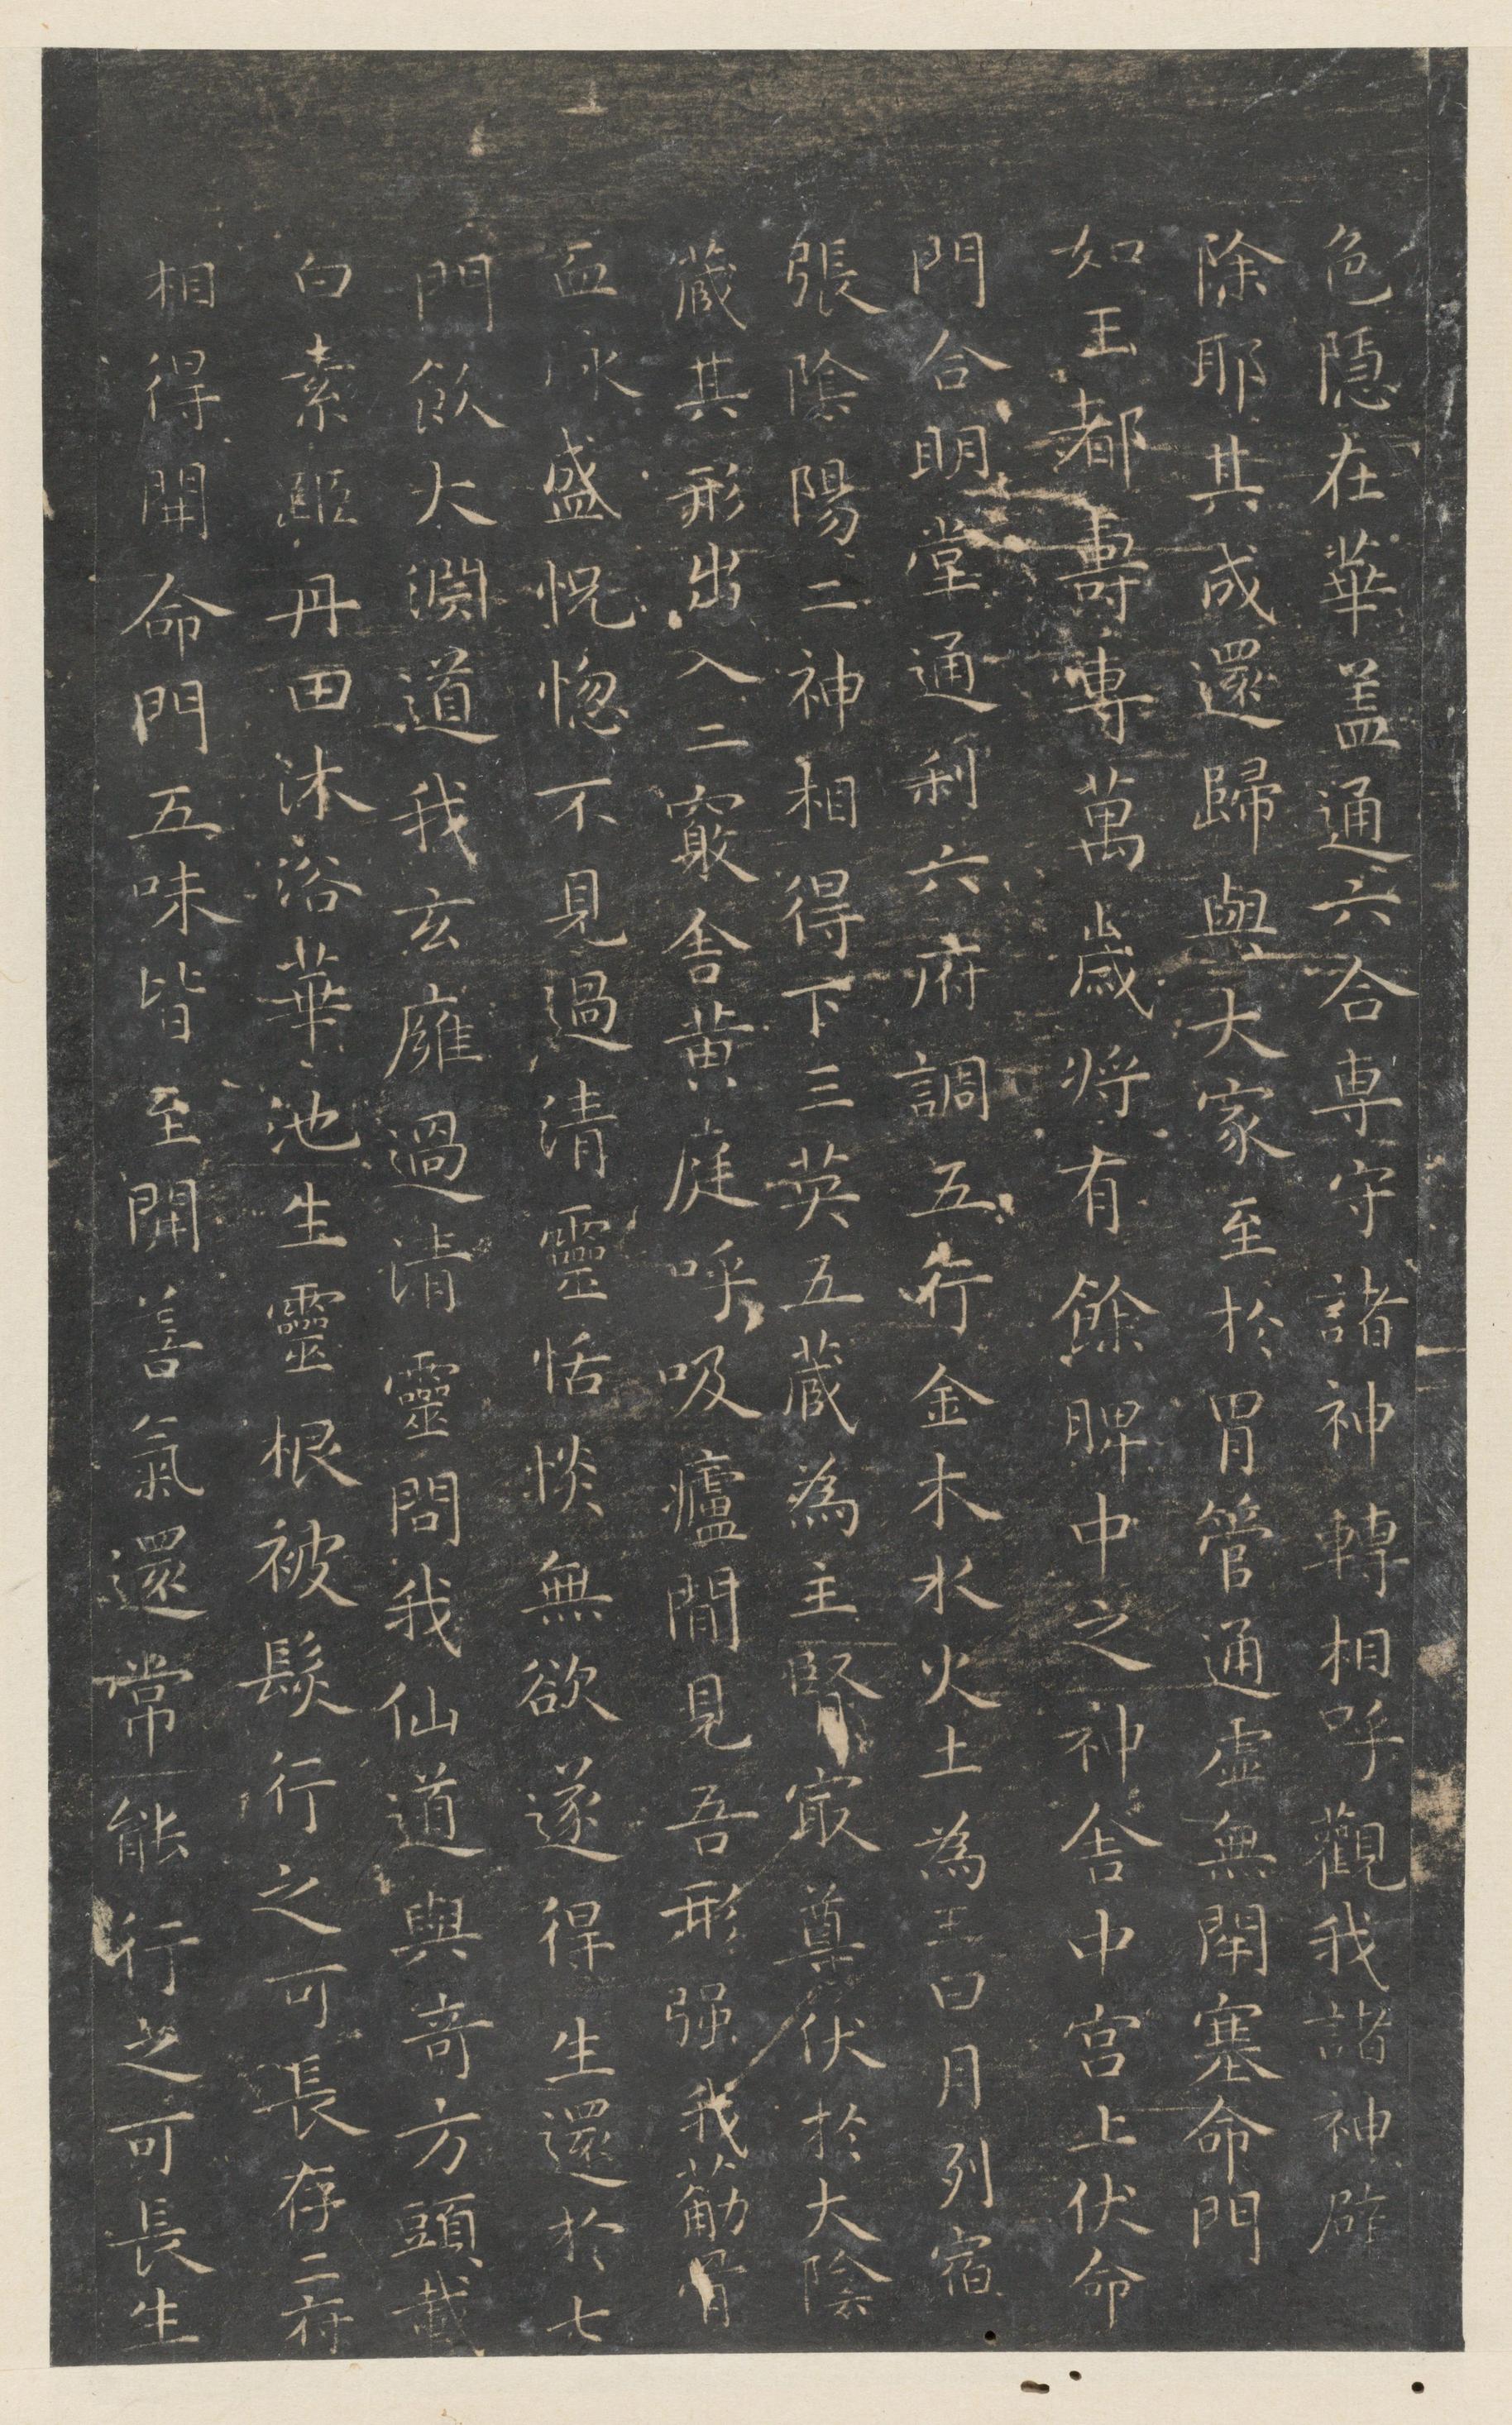 色隱在華盖通六合専守諸神轉相呼觀我諸神辟
除耶其成還歸與大家至於胃管通虛無閇塞命門
如玉都壽專萬歲将有餘脾中之神舍中宫上伏命
門合明堂通利六府調五行金木水火土為王日月列宿
張陰陽二神相得下三英五蔵為主腎㝡尊伏於大陰
蔵其形出入二竅舍黄庭呼吸廬間見吾形强我萷骨
血脉盛怳惚不見過清靈恬惔無欲遂得生還於七
門飲大淵道我玄廱過清靈問我仙道與奇方頭載
白素距丹田沐浴華池生靈根被髮行之可長存二府
相得開命門五味皆至開善氣還常能行之可長生